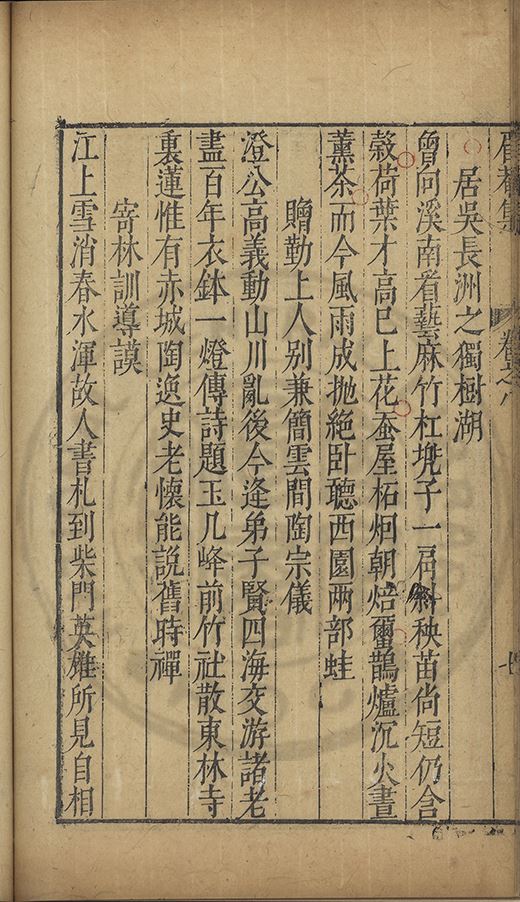 居吳長洲之獨樹湖
曾向溪南看藝麻竹杠堯子一肩斜秧苗尚短仍含
穀荷葉才高已上花蚕屋柘烟朝焙蠒鵲爐沉火晝
薰茶而今風雨成抛絶卧聽西園兩部蛙
贈勤上人别兼簡雲間陶宗儀
澄公高義動山川亂後今逢弟子賢四海交游諸老
盡百年衣鉢一燈傳詩題玉几峰前竹社散東林寺
裏蓮惟有赤城陶逸史老懷能說舊時禪
寄林訓導謨
江上雪消春水渾故人書札到柴門英雄所見自相